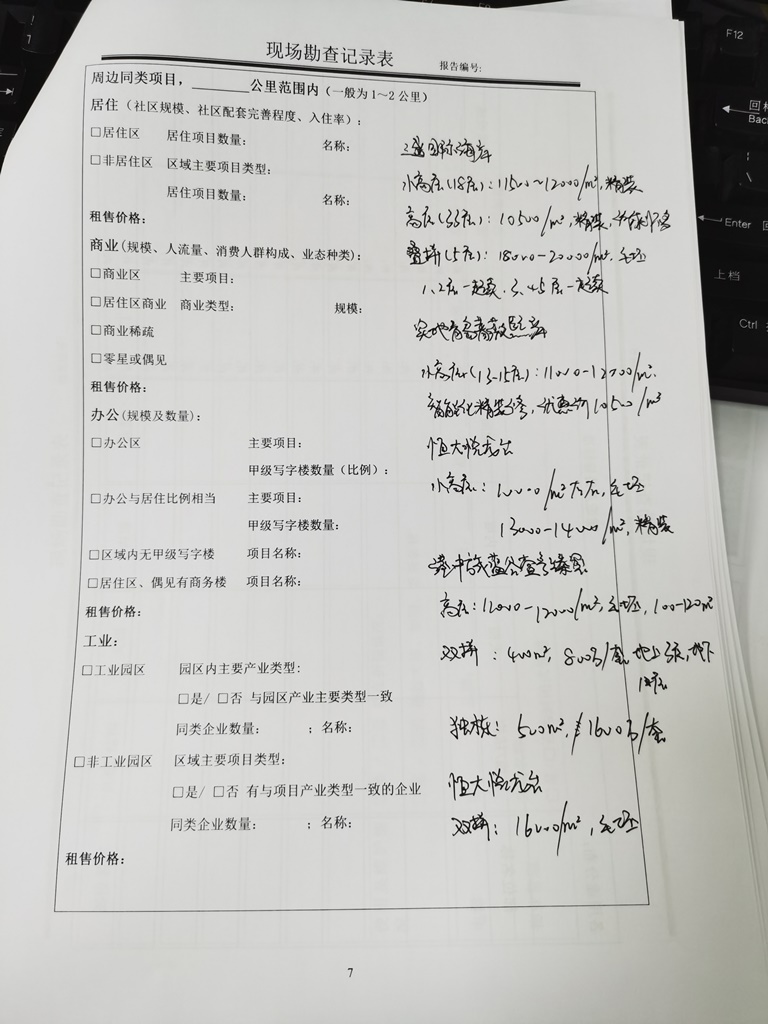 现场勘查记录表
报告编号:
周边同类项目，______公里范围内（一般为1～2公里）
居住（社区规模、社区配套完善程度、入住率）:
□居住区 居住项目数量: 名称: 国际海岸
□非居住区 区域主要项目类型:
小高层(18层): 11500~12000/m², 精装
居住项目数量: 名称:
高层(33层): 10500/m², 精装,
租售价格:
商业(规模、人流量、消费人群构成、业态种类):
叠拼(5层): 18000-20000/m², 毛坯
1、2层一起卖, 3、4、5层一起卖
□商业区 主要项目:
□居住区商业 商业类型: 规模:
□商业稀疏
实地青岛蔷薇熙岸
□零星或偶见
小高层(13-15层): 11000-12000/m²
租售价格:
智能化精装修, 优惠价10500/m²
办公(规模及数量):
□办公区 主要项目:
恒大悦龙台
甲级写字楼数量（比例）:
小高层: 10000/m²左右, 毛坯
□办公与居住比例相当 主要项目:
13000-14000/m², 精装
甲级写字楼数量:
□区域内无甲级写字楼 项目名称:
港中旅蓝谷
□居住区、偶见有商务楼 项目名称:
高层: 11000-12000/m², 毛坯, 100-120m²
租售价格:
工业:
双拼: 400m², 800万/套 地上3层, 地下
1层
□工业园区 园区内主要产业类型:
□是/ □否 与园区产业主要类型一致
同类企业数量: ; 名称:
独栋: 500m², 1600万/套
□非工业园区 区域主要项目类型:
恒大悦龙台
□是/ □否 有与项目产业类型一致的企业
同类企业数量: ; 名称:
双拼: 16000/m², 毛坯
租售价格:
7
F12
Enter
上档
Ctrl